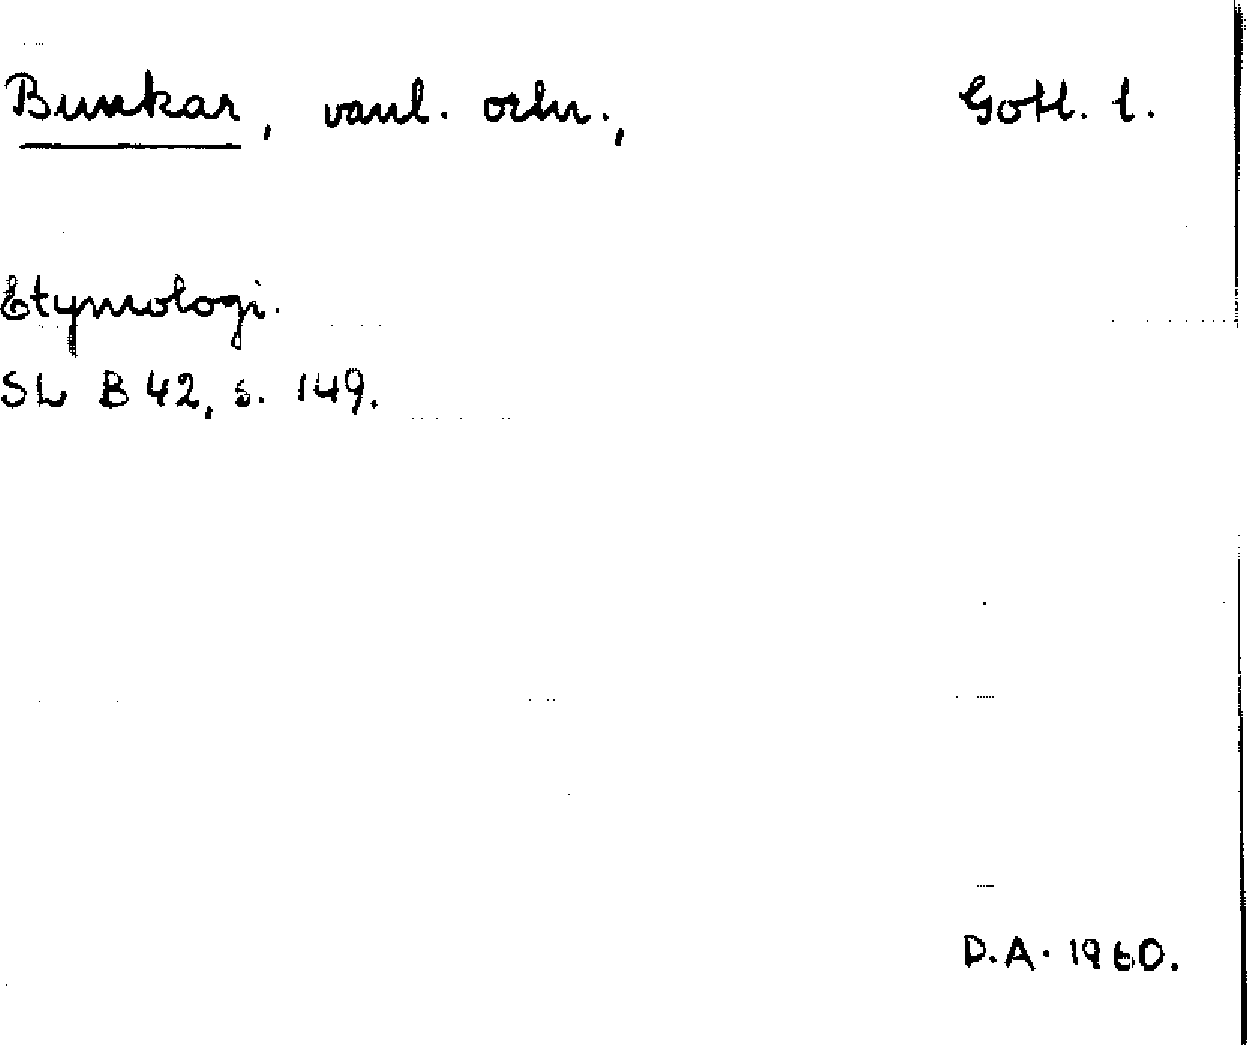 Bunkar, vanl. ortn., Gotl. l.
Etymologi.
SL B 42, s. 149.
D.A. 1960.